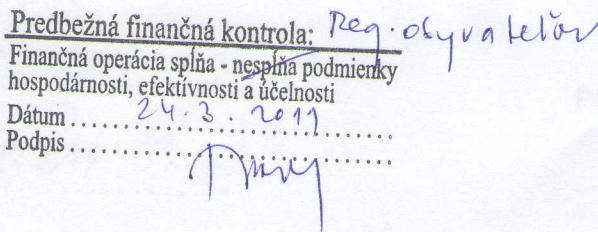 Predbežná finančná kontrola: Reg. obyvateľov
Finančná operácia spĺňa - nespĺňa podmienky
hospodárnosti, efektívnosti a účelnosti
Dátum ..... 24. 3. 2011 .....
Podpis .....